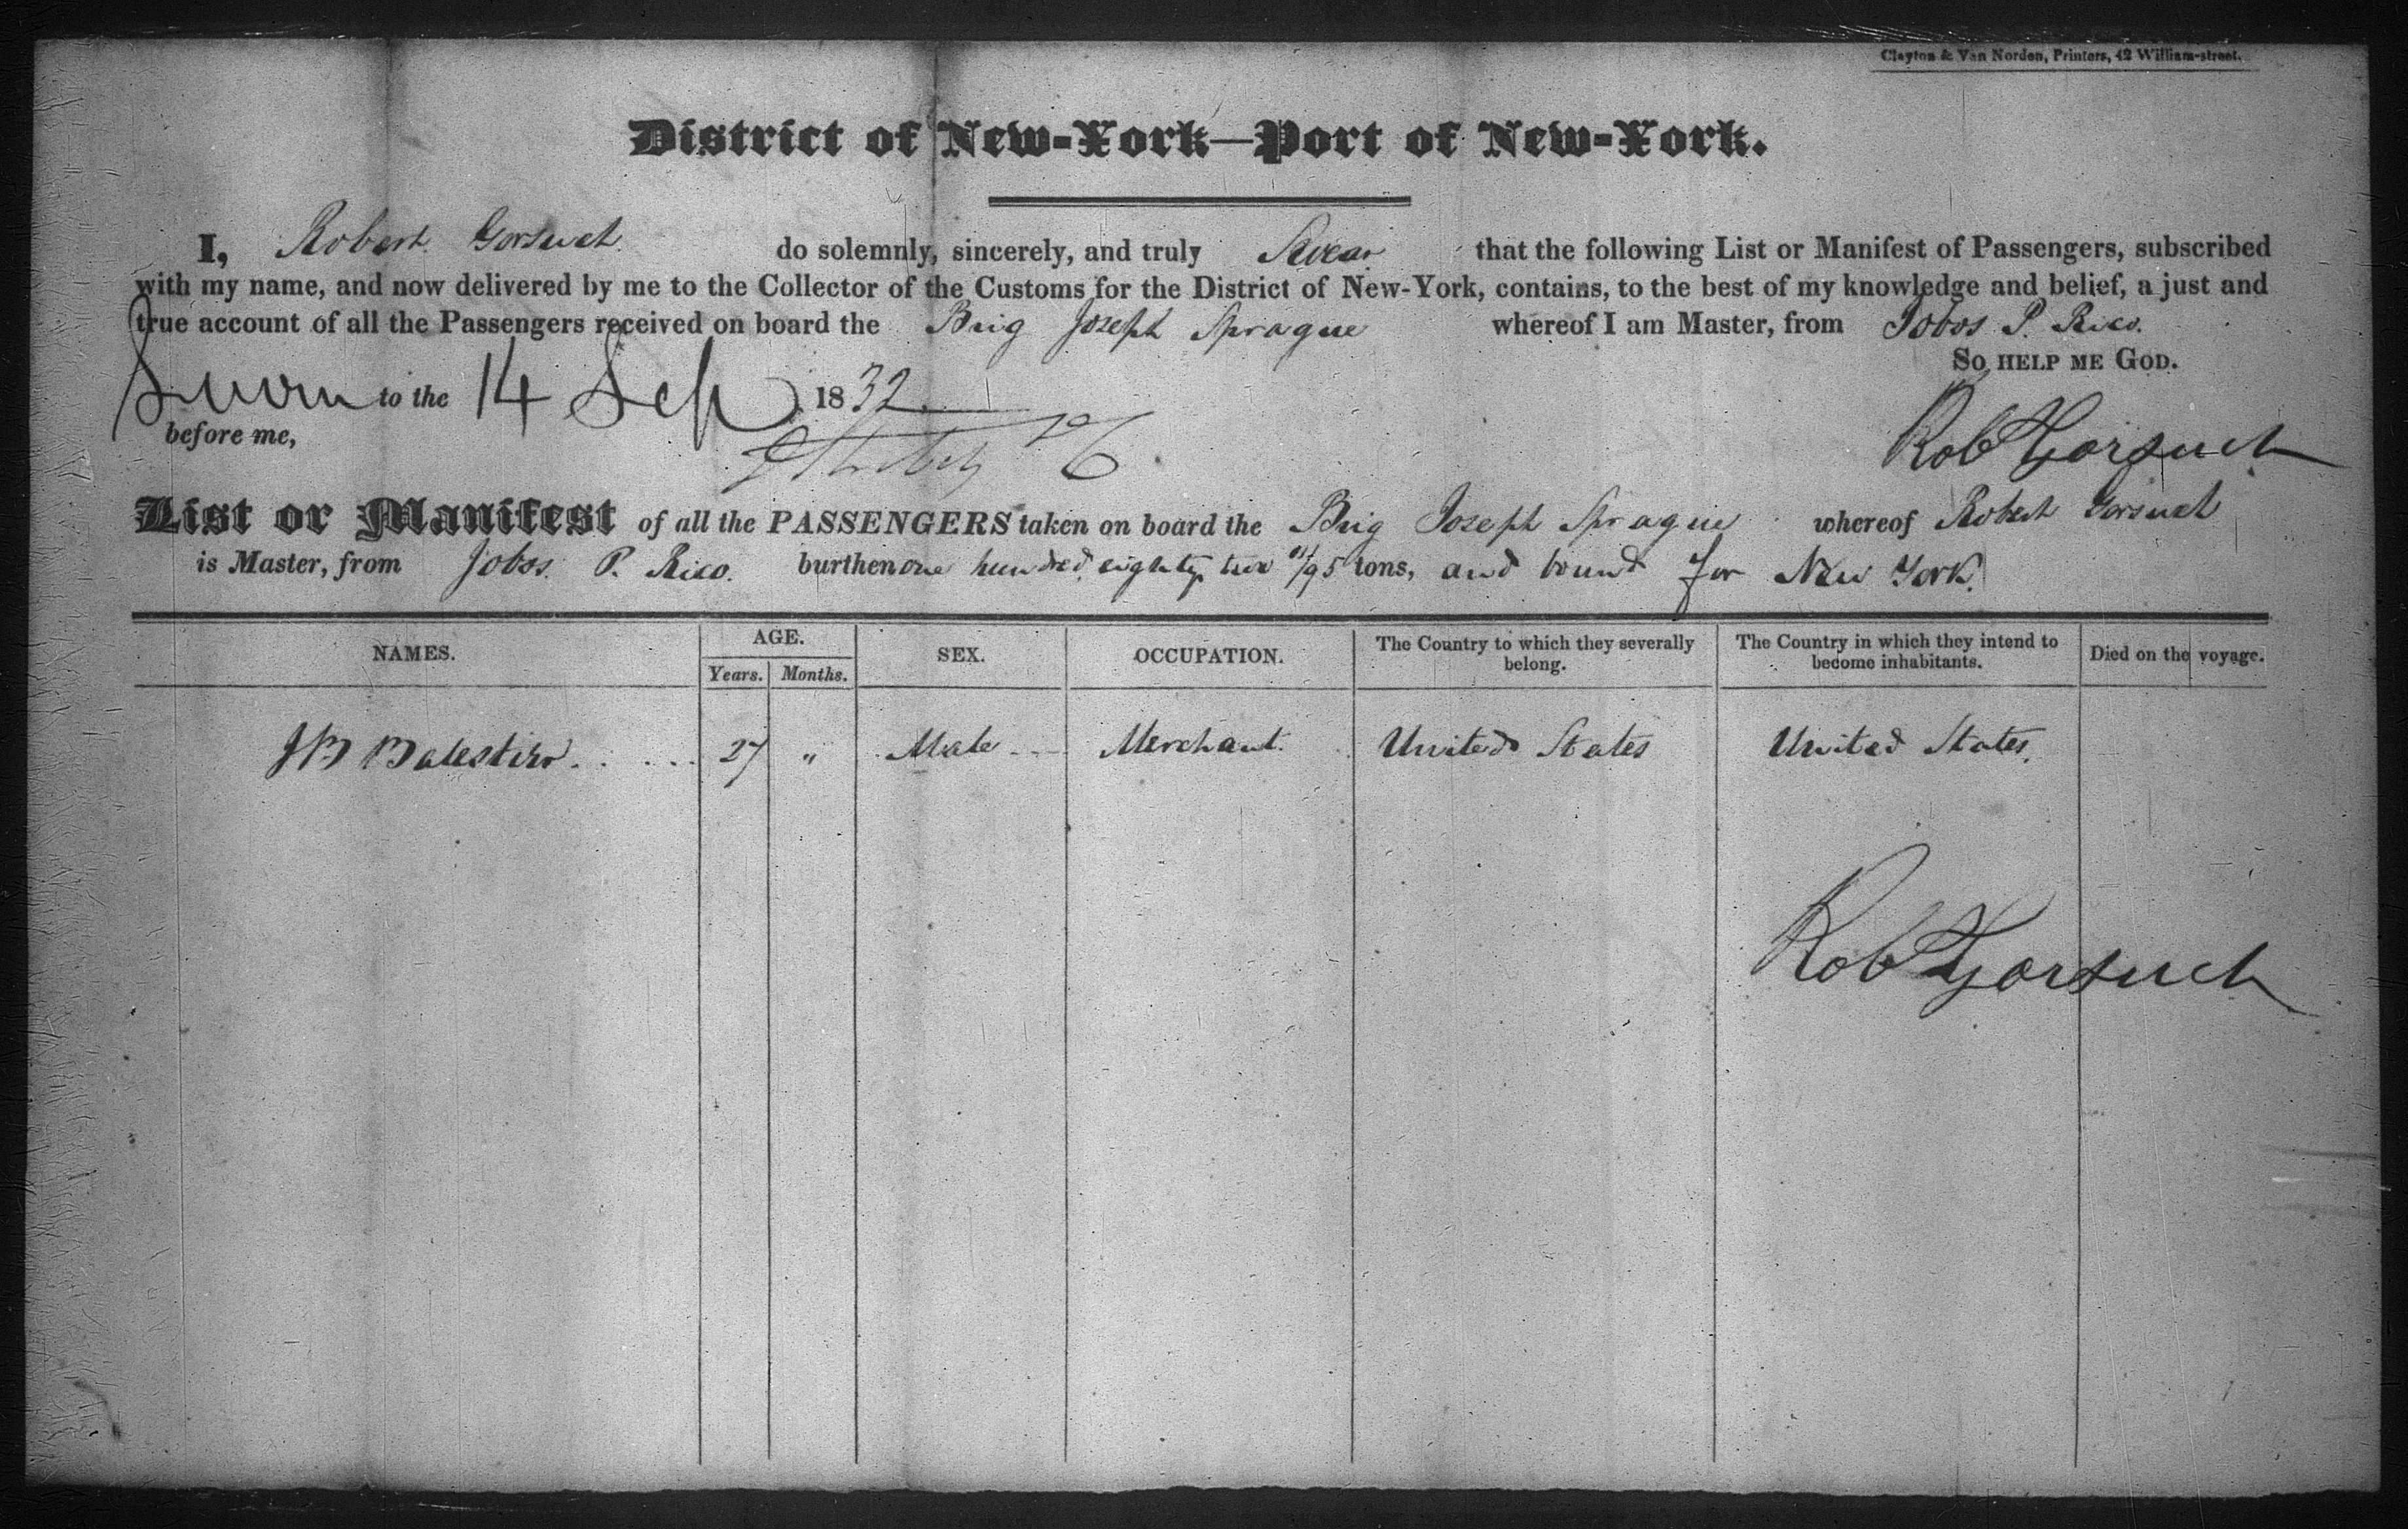 Clayton & Van Norden, Printers, 42 William-street.
District of New-York—Port of New-York.
I, Robert Gorsuch do solemnly, sincerely, and truly Swear that the following List or Manifest of Passengers, subscribed
with my name, and now delivered by me to the Collector of the Customs for the District of New-York, contains, to the best of my knowledge and belief, a just and
true account of all the Passengers received on board the Brig Joseph Sprague whereof I am Master, from Jobos P. Rico.
SO HELP ME GOD.
Sworn to the 14 Sep 1832
before me,
Rob Gorsuch
List or Manifest of all the PASSENGERS taken on board the Brig Joseph Sprague whereof Robert Gorsuch
is Master, from Jobos. P. Rico. burthen one hundred eighty two /95 tons, and bound for New York.
NAMES. AGE. SEX. OCCUPATION. The Country to which they severally belong. The Country in which they intend to become inhabitants. Died on the voyage.
Years. Months.
JB Balestier 27 " Male Merchant. United States United States.
Rob Gorsuch